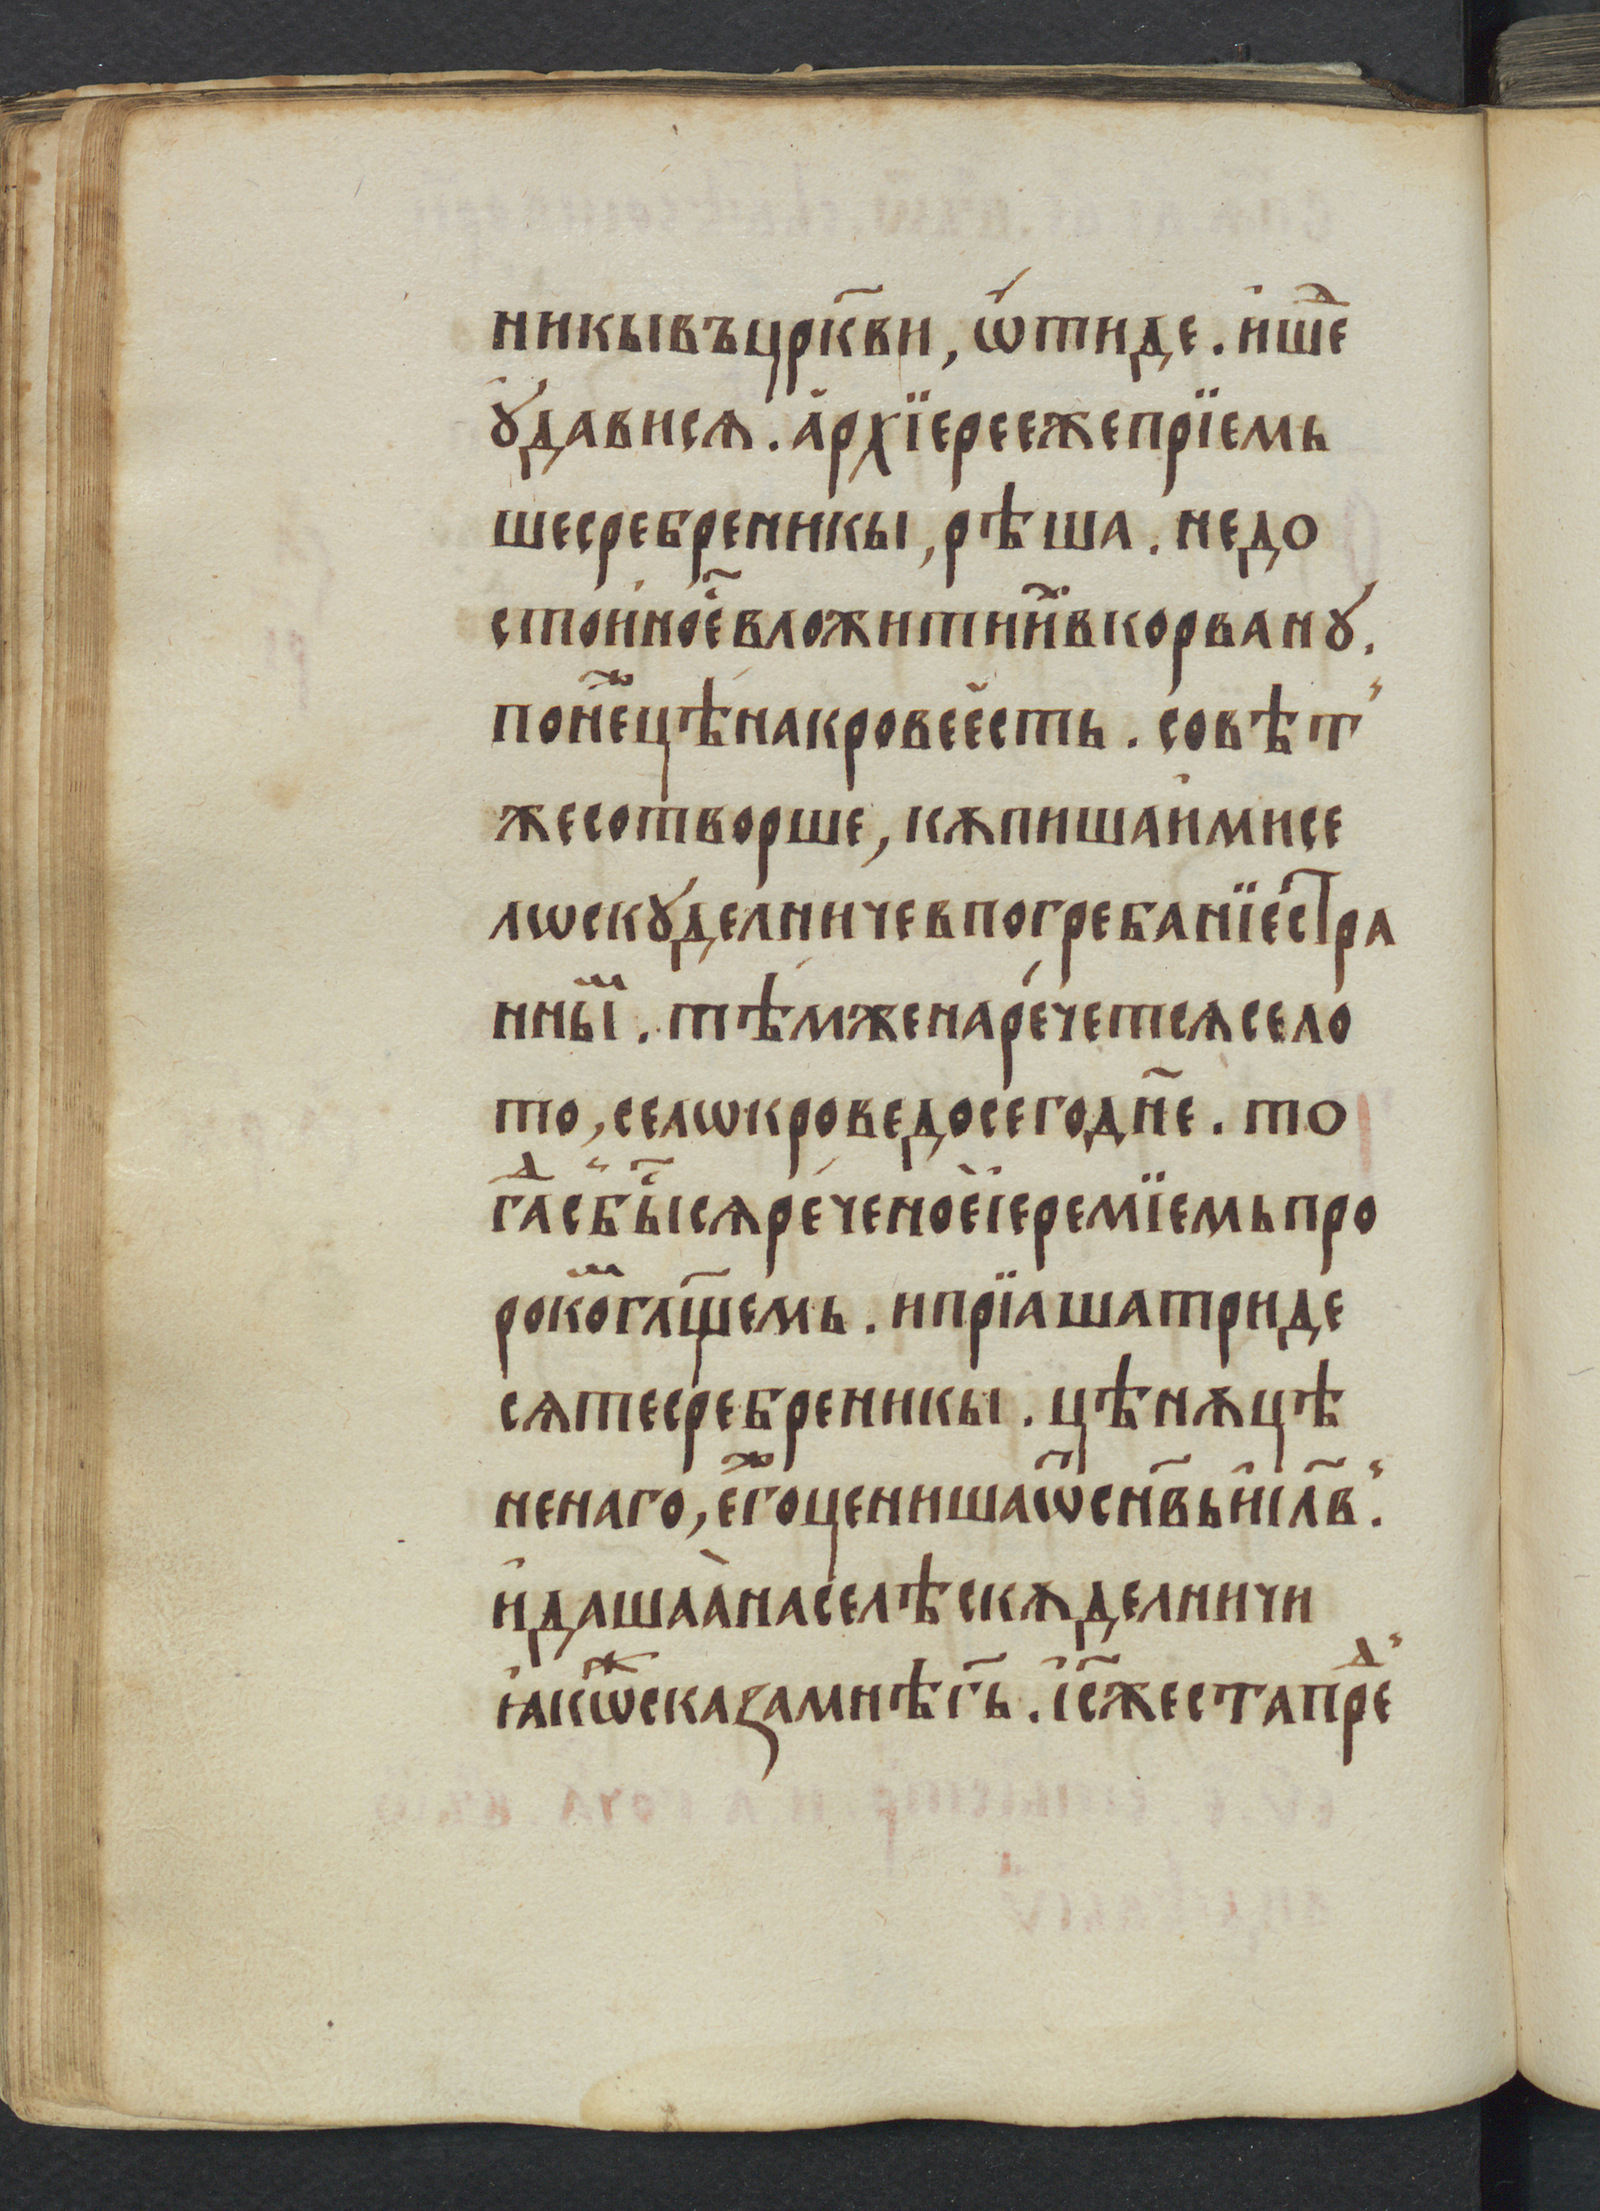 никывъцр҃кви, ѿтиде. и҆шеⷣ
ꙋ҆дависѧ. а҆рхїереежепрїемь
шесребреникы, рѣша. недо
стои҆ное҆҃вложитин҃ⷯвкорванꙋ.
понеⷤцѣнакровее҆сть. совѣт̾
жесотворше, кѫпишаи҆мисе
лѡскꙋделничевпогребанїестра
нныⷨ. тѣмженаречетсѧсело
то, селѡкроведосегодн҃е. то
гдⷣас̾бы҃сѧреченое҆і҆еремїемьпро
рокоⷨгл҃щемь. ипрїашатриде
сѧтесребреникы. цѣнѫцѣ
ненаго, егоⷤцениша҆ѿсн҃вьи҆іл҃в̾.
и҆дашаа҆населѣскѫделничи
ꙗ҆коⷤсказамнѣгь҃. і҆с҃жестапреⷣ